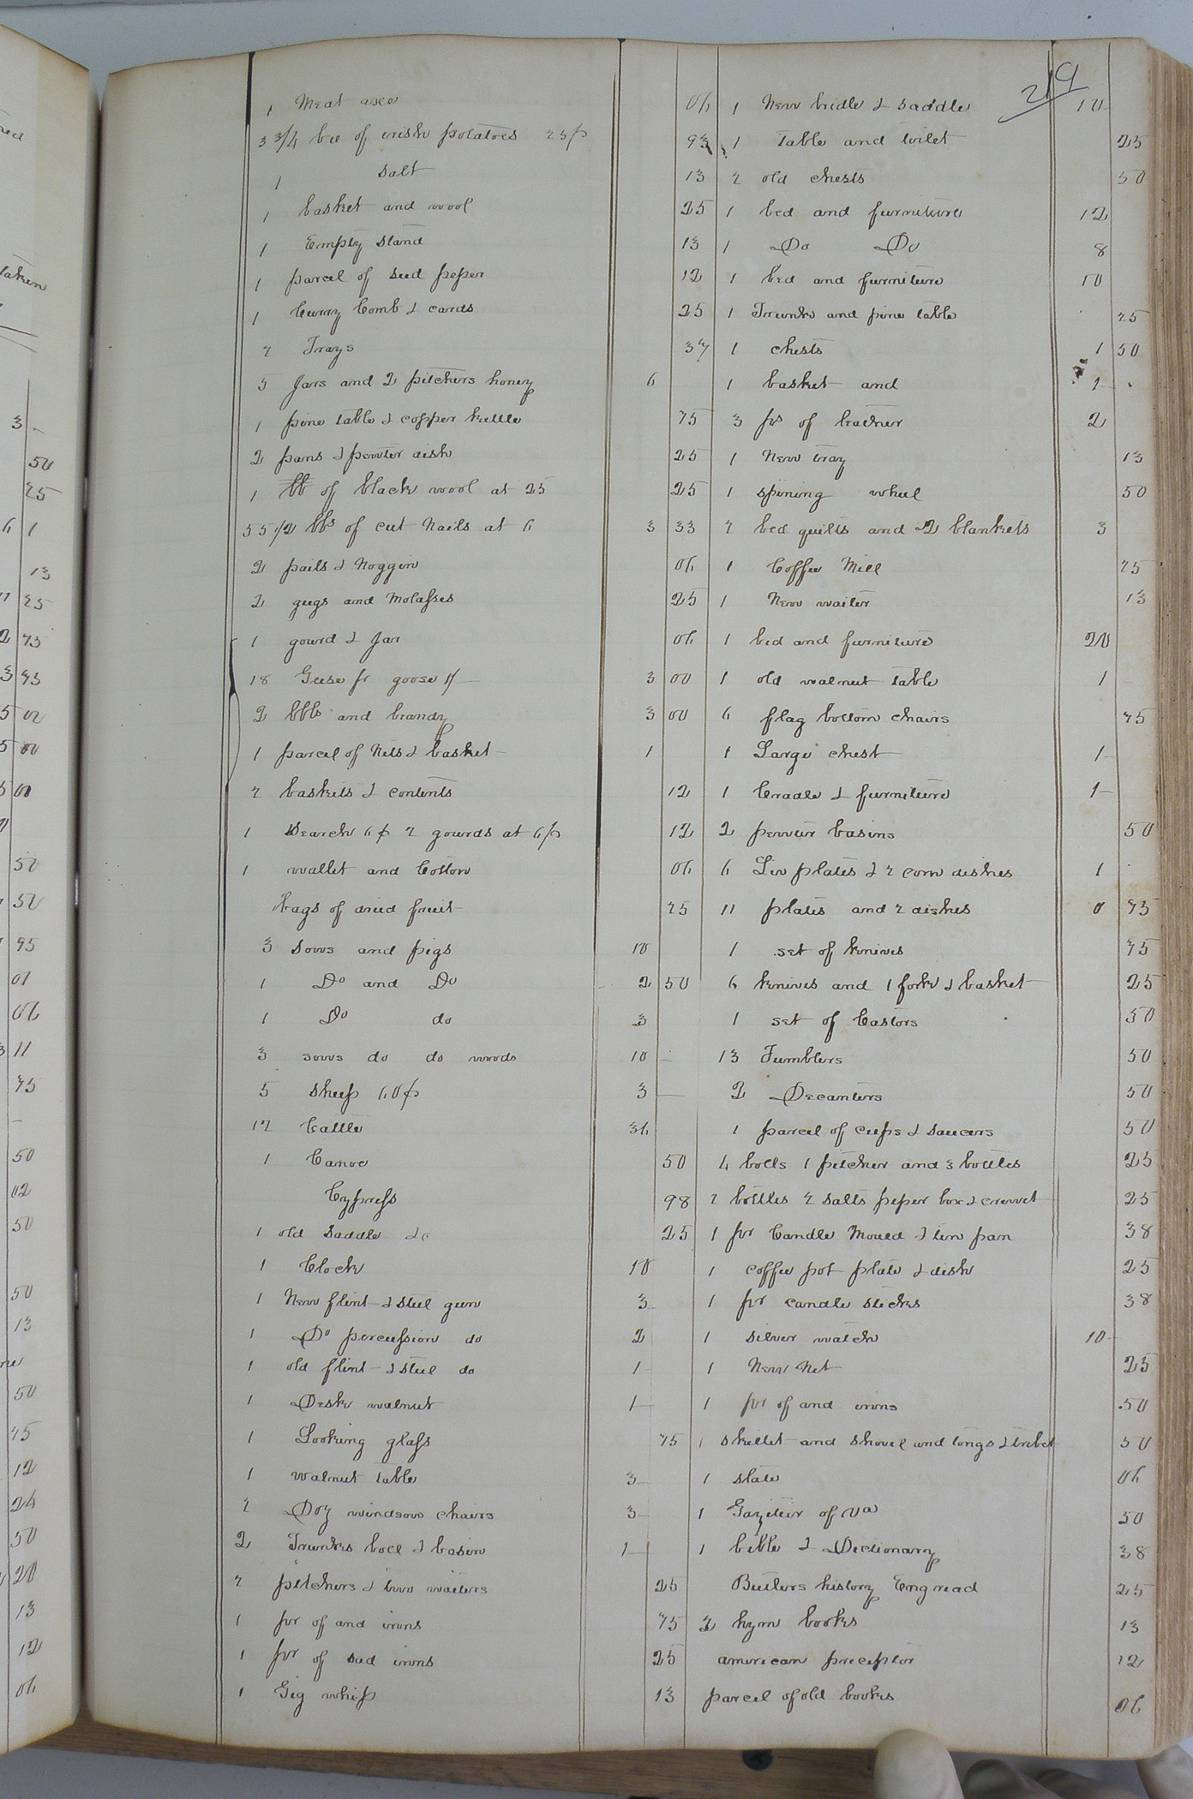 219
1 Meat axe 06
3 3/4 bu of irish potatoes 25 p 93
1 Salt 13
1 basket and wool 25
1 Empty Stand 13
1 parcel of seed peper 12
1 Curry Comb & cards 25
2 Trays 37
5 Jars and 2 pitchers honey 6
1 pine table & copper kettle 75
2 pans & pewter dish 25
1 lb of black wool at 25 25
55 1/2 lbs of cut Nails at 6 3 33
2 pails & Noggin 06
2 gugs and Molasses 25
1 gourd & Jar 06
18 Geese pr goose 1/ 3 00
2 bbls and brandy 3 00
1 parcel of Nets & basket 1
2 baskets & contents 12
1 Search 6 p 2 gourds at 6 p 12
1 wallet and Cotton 06
bags of dried fruit 25
3 Sows and pigs 10
1 Do and Do 2 50
1 Do do 3
3 sows do do woods 10
5 Sheep 60 p 3
12 Cattle 36
1 Canoe 50
Cypress 98
1 old Saddle &c 25
1 Clock 10
1 New flint & steel gun 3
1 Do percussion do 2
1 old flint & steel do 1
1 Desk walnut 1
1 Looking glass 75
1 walnut table 3
2 Doz windsow chairs 3
2 Trunks boll & basin 1
2 pitchers & two waiters 25
1 pr of and irons 75
1 pr of sad irons 25
1 Gig whip 13
1 New bridle & Saddle 10
1 Table and toilet 25
2 old chests 50
1 bed and furniture 12
1 Do Do 8
1 bed and furniture 10
1 Trunk and pine table 25
1 chests 1 50
1 basket and 1
3 ps of leather 2
1 New tray 13
1 spining wheel 50
2 bed quilts and 2 blankets 3
1 Coffee Mill 25
1 New waiter 13
1 bed and furniture 20
1 old walnut table 1
6 flag bottom chairs 75
1 Large chest 1
1 Cradle & furniture 1
2 pewter basins 50
6 Tin plates & 2 corn dishes 1
11 plates and 2 dishes 0 75
1 set of knives 75
6 knives and 1 fork & basket 25
1 set of Castors 50
13 Tumblers 50
2 Decanters 50
1 parcel of cups & Saucers 50
4 bolls 1 pitcher and 3 bottles 25
2 bottles 2 salts peper box & crewet 25
1 pr Candle Mould & tin pan 38
1 coffee pot plate & dish 25
1 pr candle sticks 38
1 silver watch 10
1 New Net 25
1 pr of and irons 50
1 skillet and Shovel and tongs & trivet 50
1 slate 06
1 Gaziteir of Va 50
1 bible & Dictionary 38
Butlers history Eng read 25
2 hym books 13
american preceptor 12
parcel of old books 06